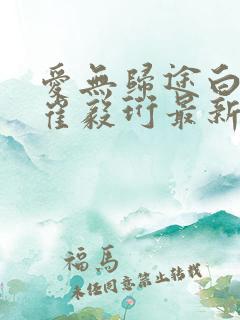 愛無歸途白
崔毅珩最新
福馬
未經同意禁止轉載